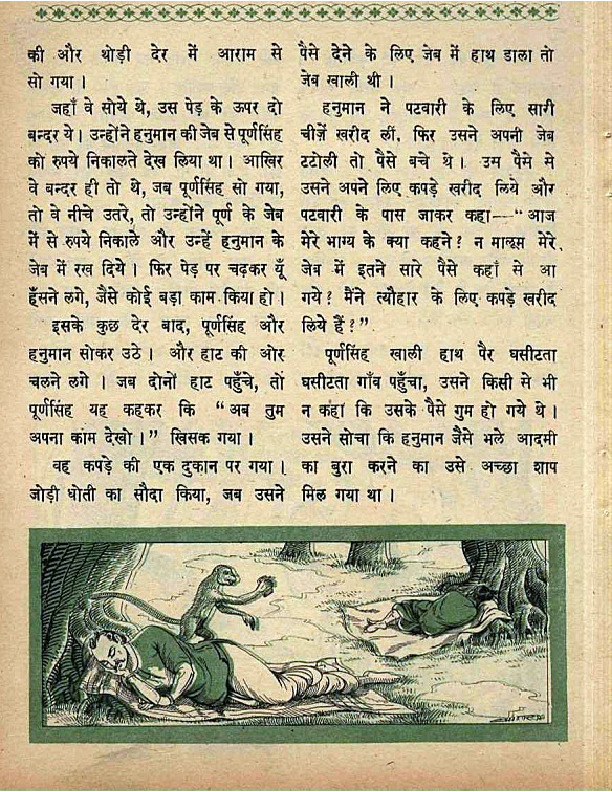 की और थोड़ी देर में आराम से
सो गया।
जहाँ वे सोये थे, उस पेड़ के ऊपर दो
बन्दर थे। उन्होंने हनुमान की जेब से पूर्णसिंह
को रुपये निकालते देख लिया था। आखिर
वे बन्दर ही तो थे, जब पूर्णसिंह सो गया,
तो वे नीचे उतरे, तो उन्होंने पूर्ण के जेब
में से रुपये निकाले और उन्हें हनुमान के
जेब में रख दिये। फिर पेड़ पर चढ़कर यूँ
हँसने लगे, जैसे कोई बड़ा काम किया हो।
इसके कुछ देर बाद, पूर्णसिंह और
हनुमान सोकर उठे। और हाट की ओर
चलने लगे। जब दोनों हाट पहुँचे, तो
पूर्णसिंह यह कहकर कि “अब तुम
अपना काम देखो।” खिसक गया।
वह कपड़े की एक दुकान पर गया।
जोड़ी धोती का सौदा किया, जब उसने
पैसे देने के लिए जेब में हाथ डाला तो
जेब खाली थी।
हनुमान ने पटवारी के लिए सारी
चीज़ें खरीद लीं, फिर उसने अपनी जेब
टटोली तो पैसे बचे थे। उस पैसे से
उसने अपने लिए कपड़े खरीद लिये और
पटवारी के पास जाकर कहा—“आज
मेरे भाग्य के क्या कहने? न मालूम मेरे
जेब में इतने सारे पैसे कहाँ से आ
गये? मैंने त्यौहार के लिए कपड़े खरीद
लिये हैं?”
पूर्णसिंह खाली हाथ पैर घसीटता
घसीटता गाँव पहुँचा, उसने किसी से भी
न कहा कि उसके पैसे गुम हो गये थे।
उसने सोचा कि हनुमान जैसे भले आदमी
का बुरा करने का उसे अच्छा शाप
मिल गया था।